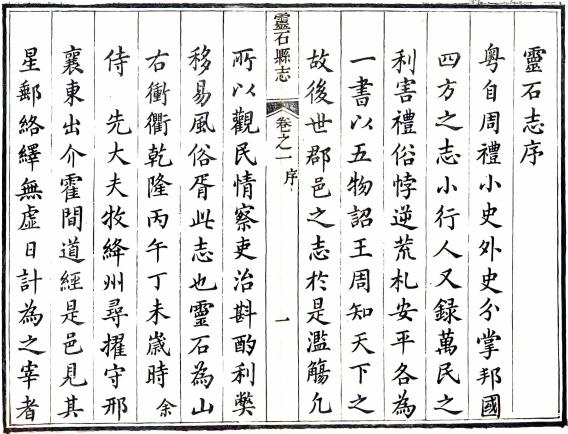 靈石志序
粵自周禮小史外史分掌邦國
四方之志小行人又録萬民之
利害禮俗悖逆荒札安平各為
一書以五物詔王周知天下之
故後世郡邑之志於是濫觴凢
靈石縣志
卷之一 序
一
所以觀民情察吏治斟酌利獘
移易風俗胥此志也靈石為山
右衝衢乾隆丙午丁未歲時余
侍 先大夫牧絳州尋擢守邢
襄東出介霍間道經是邑見其
星郵絡繹無虛日計為之宰者